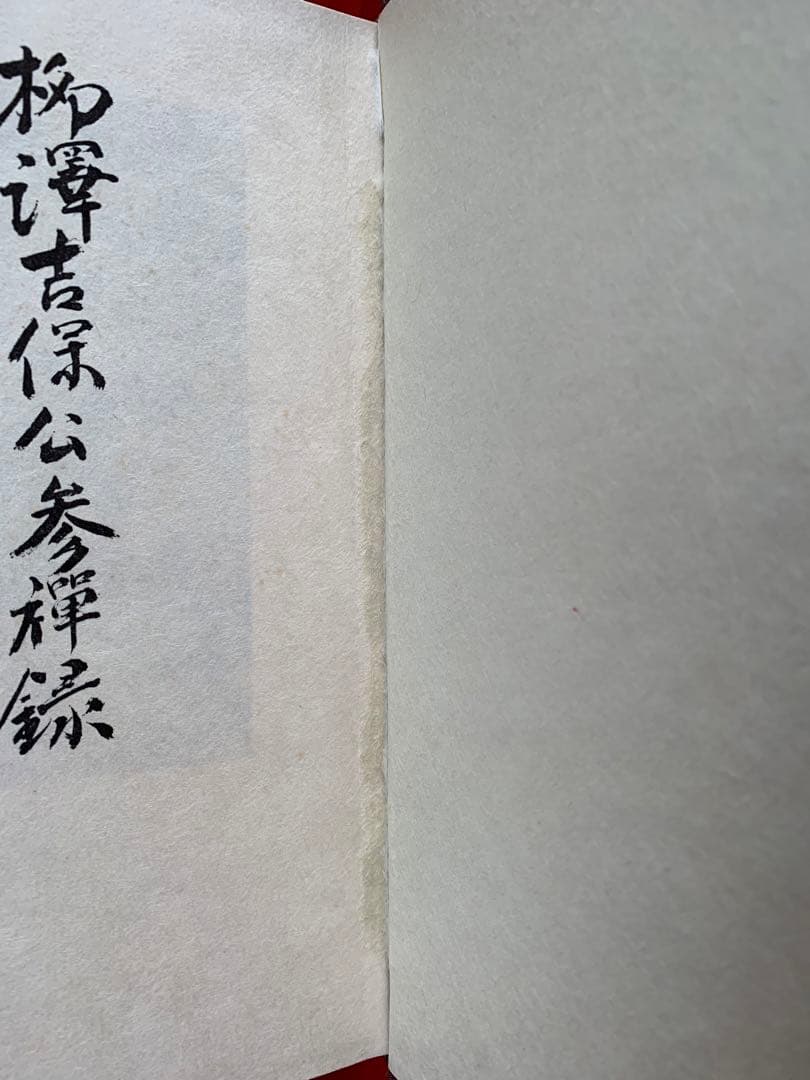 柳澤吉保公参禪録